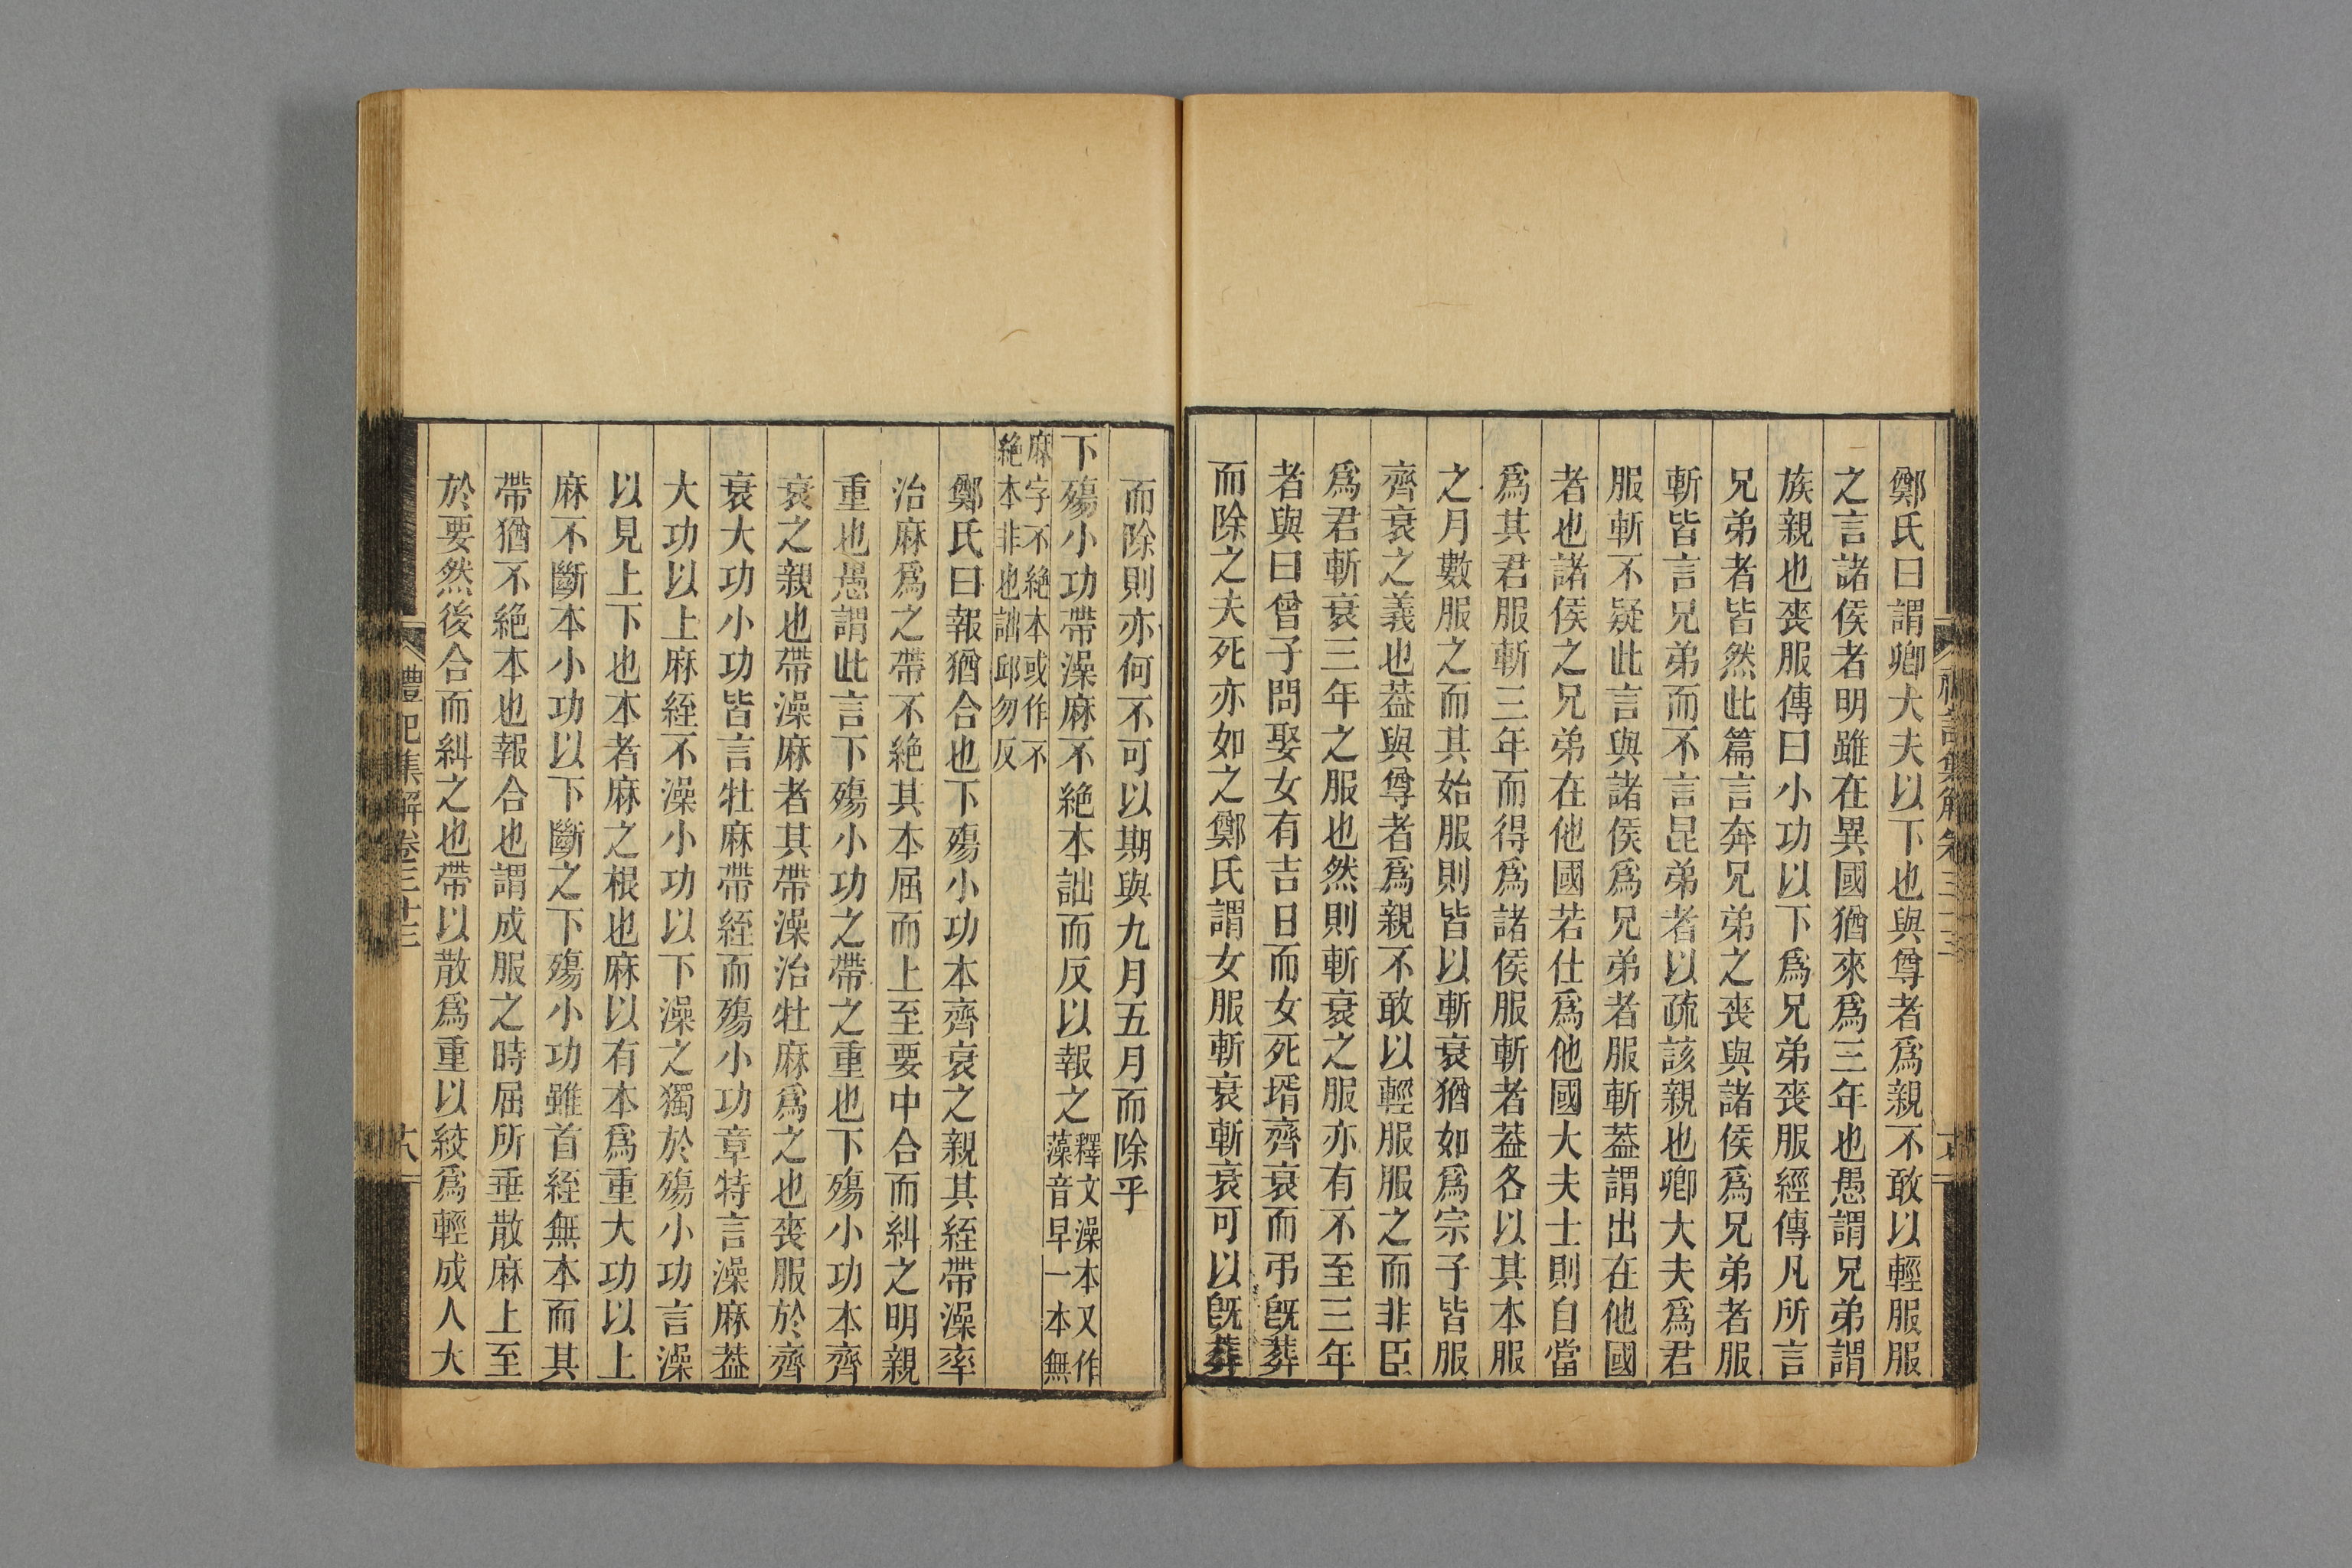 鄭氏曰謂卿大夫以下也與尊者爲親不敢以輕服服
之言諸侯者明雖在異國猶來爲三年也愚謂兄弟謂
族親也喪服傳曰小功以下爲兄弟喪服經傳凡所言
兄弟者皆然此篇言奔兄弟之喪與諸侯爲兄弟者服
斬皆言兄弟而不言昆弟者以疏該親也卿大夫爲君
服斬不疑此言與諸侯爲兄弟者服斬葢謂出在他國
者也諸侯之兄弟在他國若仕爲他國大夫士則自當
爲其君服斬三年而得爲諸侯服斬者葢各以其本服
之月數服之而其始服則皆以斬衰猶如爲宗子皆服
齊衰之義也葢與尊者爲親不敢以輕服服之而非臣
爲君斬衰三年之服也然則斬衰之服亦有不至三年
者與曰曾子問娶女有吉日而女死壻齊衰而弔旣葬
而除之夫死亦如之鄭氏謂女服斬衰斬衰可以旣葬
而除則亦何不可以期與九月五月而除乎
下殤小功帶澡麻不絶本詘而反以報之釋文澡本又作
藻音早一本無
麻字不絶本或作不
絶本非也詘邱勿反
鄭氏曰報猶合也下殤小功本齊衰之親其絰帶澡率
治麻爲之帶不絶其本屈而上至要中合而糾之明親
重也愚謂此言下殤小功之帶之重也下殤小功本齊
衰之親也帶澡麻者其帶澡治牡麻爲之也喪服於齊
衰大功小功皆言牡麻帶絰而殤小功章特言澡麻葢
大功以上麻絰不澡小功以下澡之獨於殤小功言澡
以見上下也本者麻之根也麻以有本爲重大功以上
麻不斷本小功以下斷之下殤小功雖首絰無本而其
帶猶不絶本也報合也謂成服之時屈所垂散麻上至
於要然後合而糾之也帶以散爲重以絞爲輕成人大
禮記集解卷三十三
十八